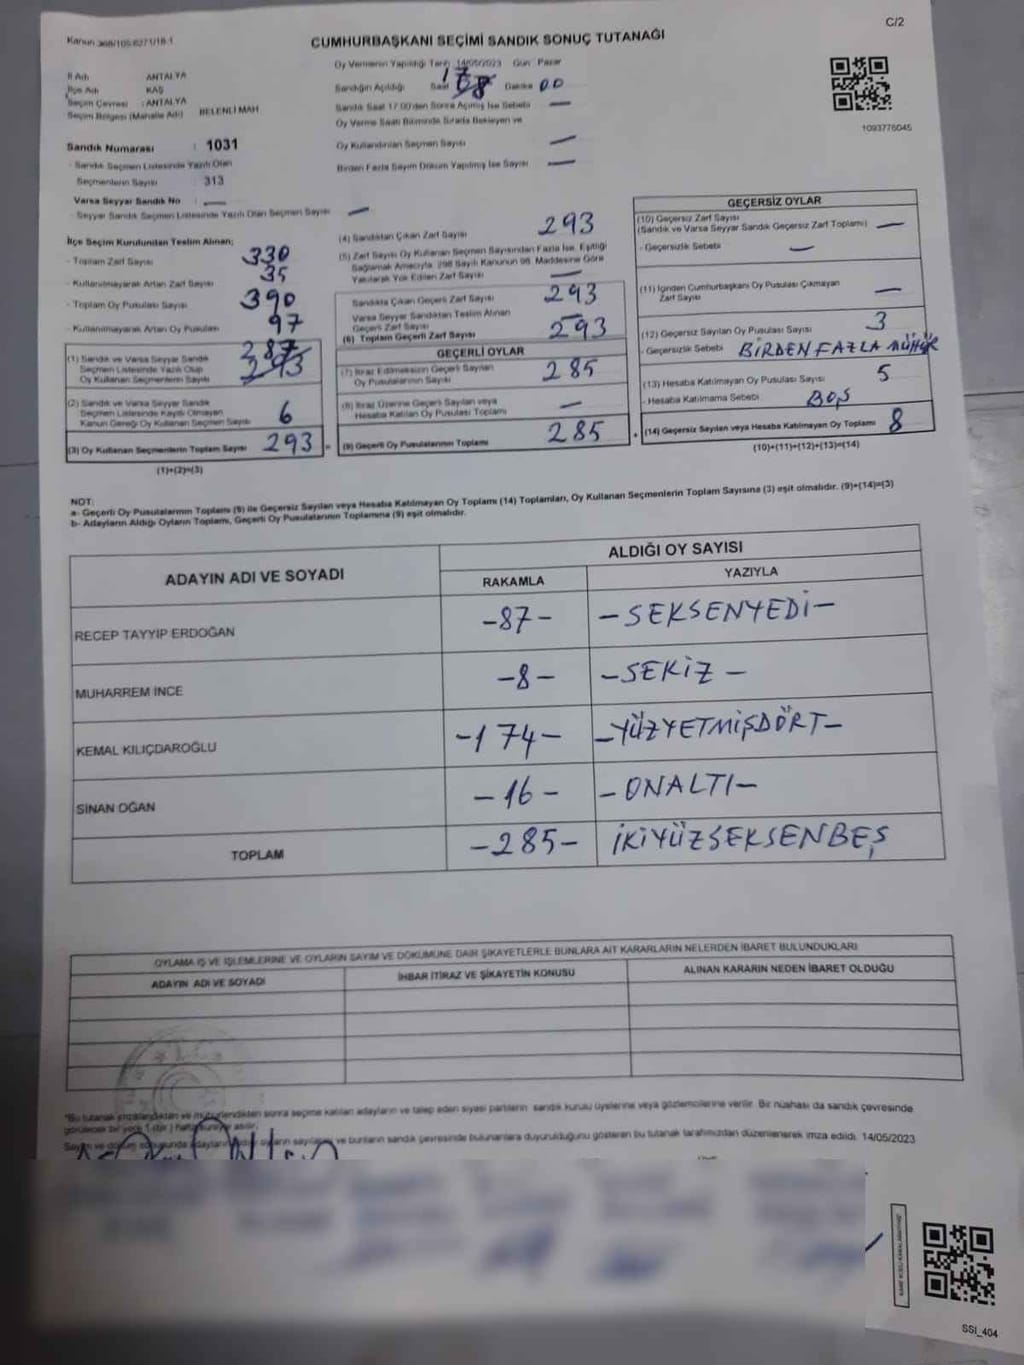 C/2
Kanun 298/105:6271/18-1
CUMHURBAŞKANI SEÇİMİ SANDIK SONUÇ TUTANAĞI
İl Adı ANTALYA
İlçe Adı KAŞ
Seçim Çevresi : ANTALYA
Seçim Bölgesi (Mahalle Adı) BELENLİ MAH.
Sandık Numarası : 1031
- Sandık Seçmen Listesinde Yazılı Olan
Seçmenlerin Sayısı : 313
Varsa Seyyar Sandık No : —
- Seyyar Sandık Seçmen Listesinde Yazılı Olan Seçmen Sayısı —
Oy Vermenin Yapıldığı Tarih 14/05/2023 Gün: Pazar
Sandığın Açıldığı Saat 17 Dakika 00
Sandık Saat 17:00'den Sonra Açılmış İse Sebebi —
Oy Verme Saati Bitiminde Sırada Bekleyen ve
Oy Kullandırılan Seçmen Sayısı —
Birden Fazla Sayım Döküm Yapılmış İse Sayısı —
1093776045
İlçe Seçim Kurulundan Teslim Alınan;
- Toplam Zarf Sayısı 330
- Kullanılmayarak Artan Zarf Sayısı 35
- Toplam Oy Pusulası Sayısı 390
- Kullanılmayarak Artan Oy Pusulası 97
(1) Sandık ve Varsa Seyyar Sandık
Seçmen Listesinde Yazılı Olup
Oy Kullanan Seçmenlerin Sayısı 287 293
(2) Sandık ve Varsa Seyyar Sandık
Seçmen Listesinde Kayıtlı Olmayan
Kanun Gereği Oy Kullanan Seçmen Sayısı 6
(3) Oy Kullanan Seçmenlerin Toplam Sayısı 293 =
(1)+(2)=(3)
(4) Sandıktan Çıkan Zarf Sayısı 293
(5) Zarf Sayısı Oy Kullanan Seçmen Sayısından Fazla İse, Eşitliği
Sağlamak Amacıyla, 298 Sayılı Kanunun 98. Maddesine Göre
Yakılarak Yok Edilen Zarf Sayısı —
Sandıkta Çıkan Geçerli Zarf Sayısı 293
Varsa Seyyar Sandıktan Teslim Alınan
Geçerli Zarf Sayısı —
(6) Toplam Geçerli Zarf Sayısı 293
GEÇERLİ OYLAR
(7) İtiraz Edilmeksizin Geçerli Sayılan
Oy Pusulalarının Sayısı 285
(8) İtiraz Üzerine Geçerli Sayılan veya
Hesaba Katılan Oy Pusulası Toplamı —
(9) Geçerli Oy Pusulalarının Toplamı 285 +
GEÇERSİZ OYLAR
(10) Geçersiz Zarf Sayısı
(Sandık ve Varsa Seyyar Sandık Geçersiz Zarf Toplamı) —
- Geçersizlik Sebebi —
(11) İçinden Cumhurbaşkanı Oy Pusulası Çıkmayan
Zarf Sayısı —
(12) Geçersiz Sayılan Oy Pusulası Sayısı 3
- Geçersizlik Sebebi BİRDEN FAZLA MÜHÜR
(13) Hesaba Katılmayan Oy Pusulası Sayısı 5
- Hesaba Katılmama Sebebi BOŞ
(14) Geçersiz Sayılan veya Hesaba Katılmayan Oy Toplamı 8
(10)+(11)+(12)+(13)=(14)
NOT:
a- Geçerli Oy Pusulalarının Toplamı (9) ile Geçersiz Sayılan veya Hesaba Katılmayan Oy Toplamı (14) Toplamları, Oy Kullanan Seçmenlerin Toplam Sayısına (3) eşit olmalıdır. (9)+(14)=(3)
b- Adayların Aldığı Oyların Toplamı, Geçerli Oy Pusulalarının Toplamına (9) eşit olmalıdır.
ADAYIN ADI VE SOYADI
ALDIĞI OY SAYISI
RAKAMLA YAZIYLA
RECEP TAYYİP ERDOĞAN -87- -SEKSENYEDİ-
MUHARREM İNCE -8- -SEKİZ-
KEMAL KILIÇDAROĞLU -174- -YÜZYETMİŞDÖRT-
SİNAN OĞAN -16- -ONALTI-
TOPLAM -285- İKİYÜZSEKSENBEŞ
OYLAMA İŞ VE İŞLEMLERİNE VE OYLARIN SAYIM VE DÖKÜMÜNE DAİR ŞİKAYETLERLE BUNLARA AİT KARARLARIN NELERDEN İBARET BULUNDUKLARI
ADAYIN ADI VE SOYADI İHBAR İTİRAZ VE ŞİKAYETİN KONUSU ALINAN KARARIN NEDEN İBARET OLDUĞU
*Bu tutanak imzalandıktan ve mühürlendikten sonra seçime katılan adayların ve talep eden siyasi partilerin sandık kurulu üyelerine veya gözlemcilerine verilir. Bir nüshası da sandık çevresinde
görülecek bir yere 1 (bir) hafta süreyle asılır.
Sayım ve döküm sonucunda adayların aldığı oyların sayıları ve bunların sandık çevresinde bulunanlara duyurulduğunu gösteren bu tutanak tarafımızdan düzenlenerek imza edildi. 14/05/2023
SSİ_404